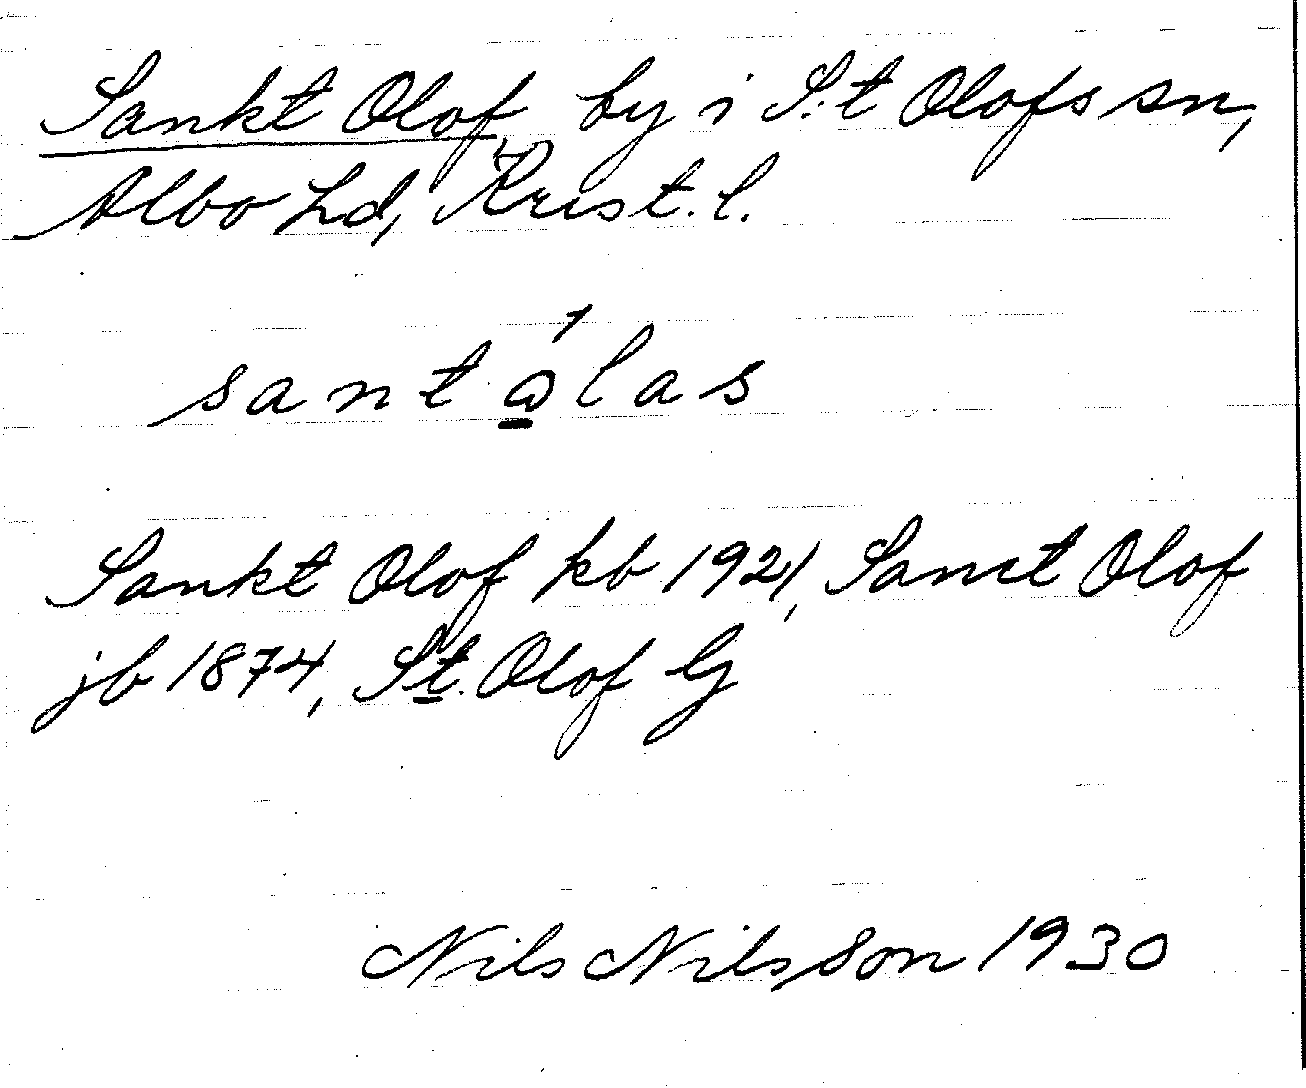 Sankt Olof, by i S:t Olofs sn,
Albo hd, Krist. l.
santώ̱las
Sankt Olof kb 1921, Sanct Olof
jb 1874, St. Olof G
Nils Nilsson 1930